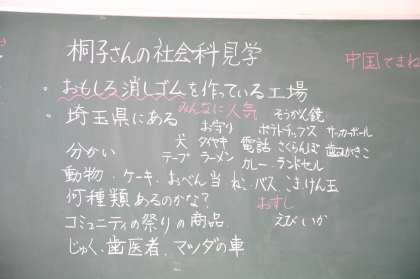 桐子さんの社会科見学
中国でまね
・おもしろ消しゴムを作っている工場
みんなに人気
・埼玉県にある
そうがん鏡
お守り ポテトチップス サッカーボール
犬 タイヤキ 電話 さくらんぼ 歯みがきこ
分かい テープ ラーメン カレー ランドセル
動物、ケーキ、おべん当、ねこ、バス、こま、けん玉
何種類あるのかな? おすし
コミュニティの祭りの商品 えび いか
じゅく、歯医者、マツダの車